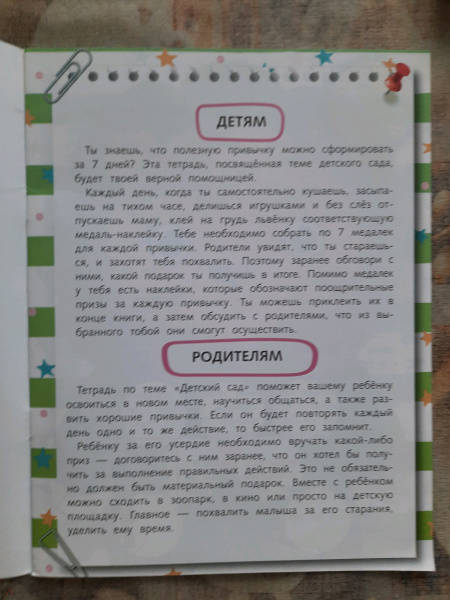 ДЕТЯМ
Ты знаешь, что полезную привычку можно сформировать
за 7 дней? Эта тетрадь, посвящённая теме детского сада,
будет твоей верной помощницей.
Каждый день, когда ты самостоятельно кушаешь, засыпа-
ешь на тихом часе, делишься игрушками и без слёз от-
пускаешь маму, клей на грудь львёнку соответствующую
медаль-наклейку. Тебе необходимо собрать по 7 медалек
для каждой привычки. Родители увидят, что ты стараешь-
ся, и захотят тебя похвалить. Поэтому заранее обговори с
ними, какой подарок ты получишь в итоге. Помимо медалек
у тебя есть наклейки, которые обозначают поощрительные
призы за каждую привычку. Ты можешь приклеить их в
конце книги, а затем обсудить с родителями, что из вы-
бранного тобой они смогут осуществить.
РОДИТЕЛЯМ
Тетрадь по теме «Детский сад» поможет вашему ребёнку
освоиться в новом месте, научиться общаться, а также раз-
вить хорошие привычки. Если он будет повторять каждый
день одно и то же действие, то быстрее его запомнит.
Ребёнку за его усердие необходимо вручать какой-либо
приз — договоритесь с ним заранее, что он хотел бы полу-
чить за выполнение правильных действий. Это не обязатель-
но должен быть материальный подарок. Вместе с ребёнком
можно сходить в зоопарк, в кино или просто на детскую
площадку. Главное — похвалить малыша за его старания,
уделить ему время.